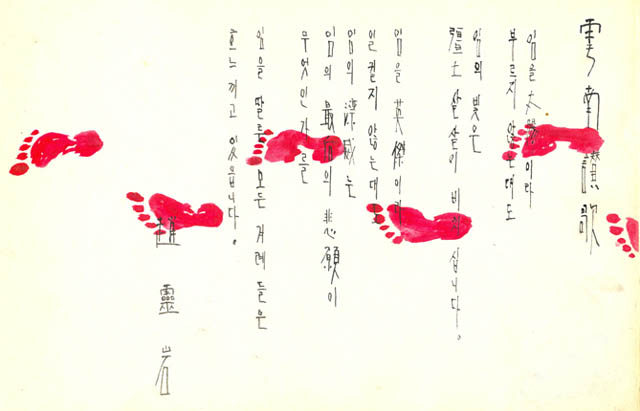 雲南讚歌
임을 太陽이라
부르지 않는대도
임의 빛은
疆土 살살이 비치십니다。
임을 英傑이라
일컬지 않는대도
임의
임의 悲願이
무엇인가를
임을 모든 겨레들은
흐느끼고 있읍니다。
趙靈岩